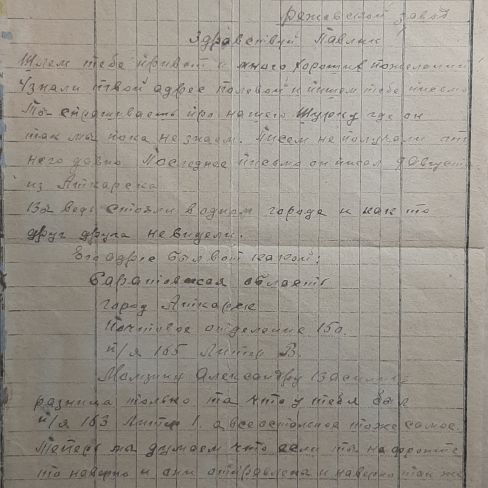 Режевской завод
Здравствуй Павлик
Шлем тебе привет и много хороших пожеланий
Узнали твой адрес полевой и пишем тебе письмо
Ты спрашиваешь про нашего Шурку где он
так мы пока не знаем. Писем не получали от
него давно. Последнее письмо он писал 9 августа
из Аткарска
Вы ведь стояли в одном городе и как то
друг друга не видели.
Его адрес был вот какой:
Саратовская область
город Аткарск
Почтовое отделение 15а
п/я 165 Литер В.
Александру
разница только та что у тебя был
п/я 163 Литер 1. а все остальное тоже самое.
Теперь мы думаем что если ты на фронте
то наверно и они отправлена и наверно там же